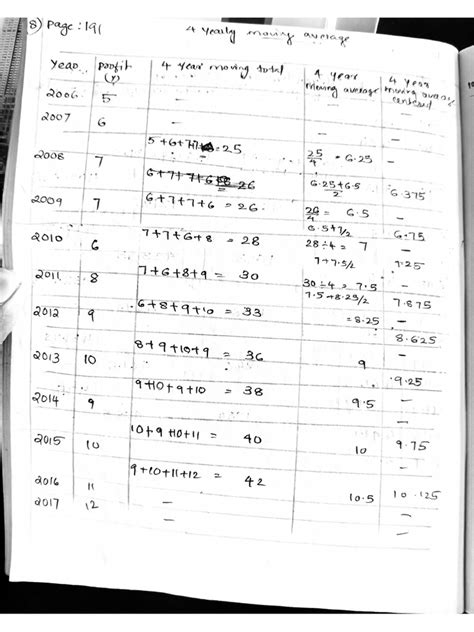 8) Page : 191
4 Yearly moving average
Year profit (Y) 4 Year moving total 4 year moving average 4 year moving average centered
2006 5 – – –
2007 6 – – –
5+6+7+7 = 25 25/4 = 6.25 –
2008 7 6.25+6.5/2 6.375
6+7+7+6 = 26
2009 7 6+7+7+6 = 26 26/4 = 6.5 –
6.5+7/2 6.75
2010 6 7+7+6+8 = 28 28÷4 = 7 –
7+7.5/2 7.25
2011 8 7+6+8+9 = 30 30÷4 = 7.5 –
7.5+8.25/2 7.875
2012 9 6+8+9+10 = 33 = 8.25 –
8.625
2013 10 8+9+10+9 = 36 9 –
9.25
2014 9 9+10+9+10 = 38 9.5 –
2015 10 10+9+10+11 = 40 10 9.75
–
2016 11 9+10+11+12 = 42 10.5 10.125
2017 12 – – –
– –